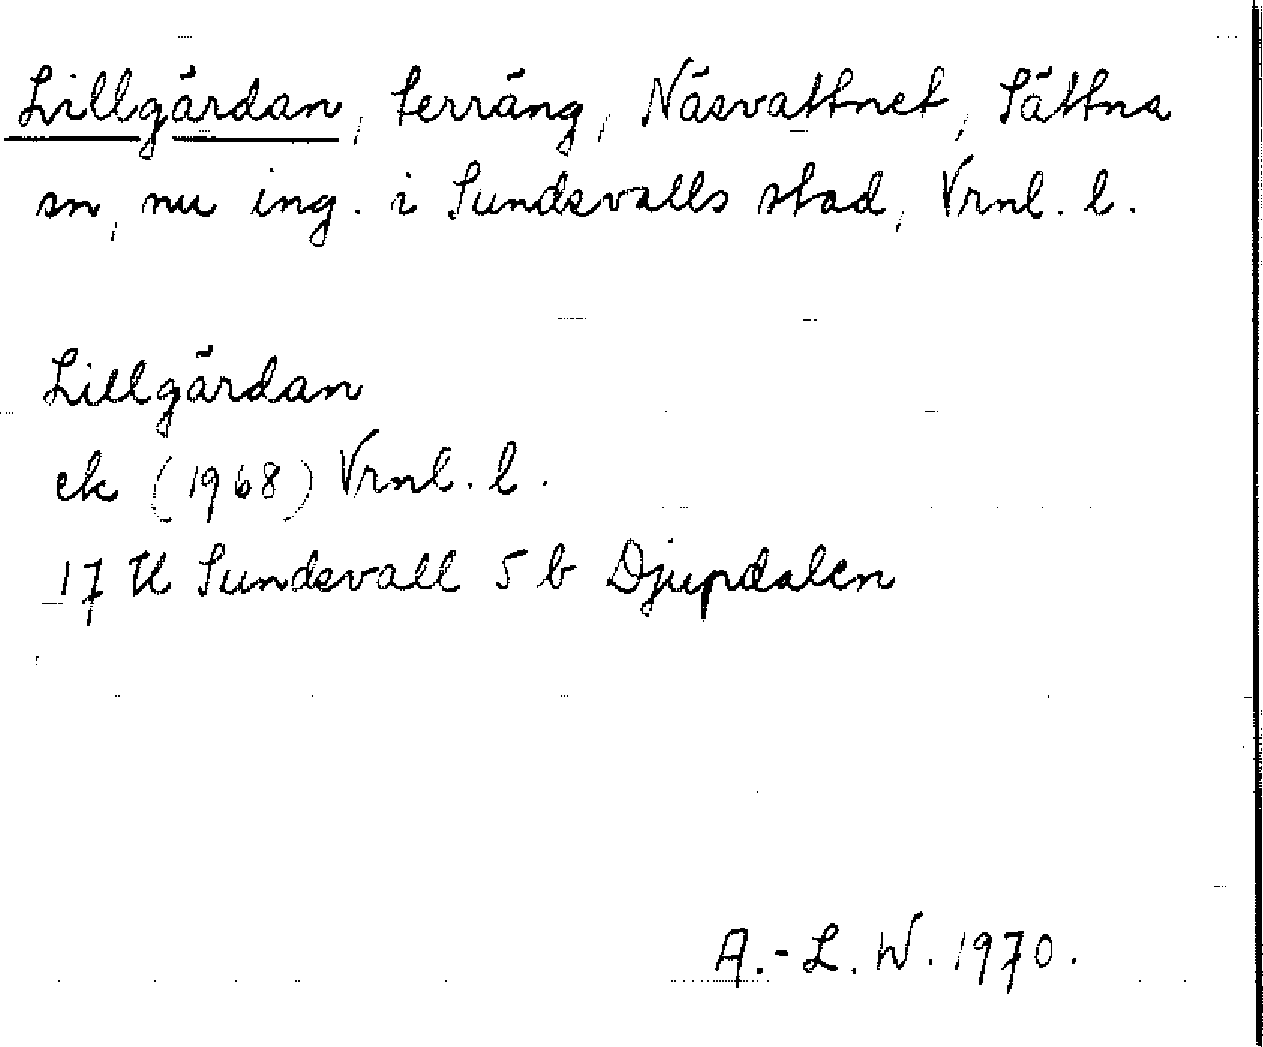 Lillgärdan, terräng, Näsvattnet, Sättna
sn, nu ing. i Sundsvalls stad, Vrnl. l.
Lillgärdan
ek (1968) Vrnl. l.
17 H Sundsvall 5 b Djupdalen
A.-L. W. 1970.